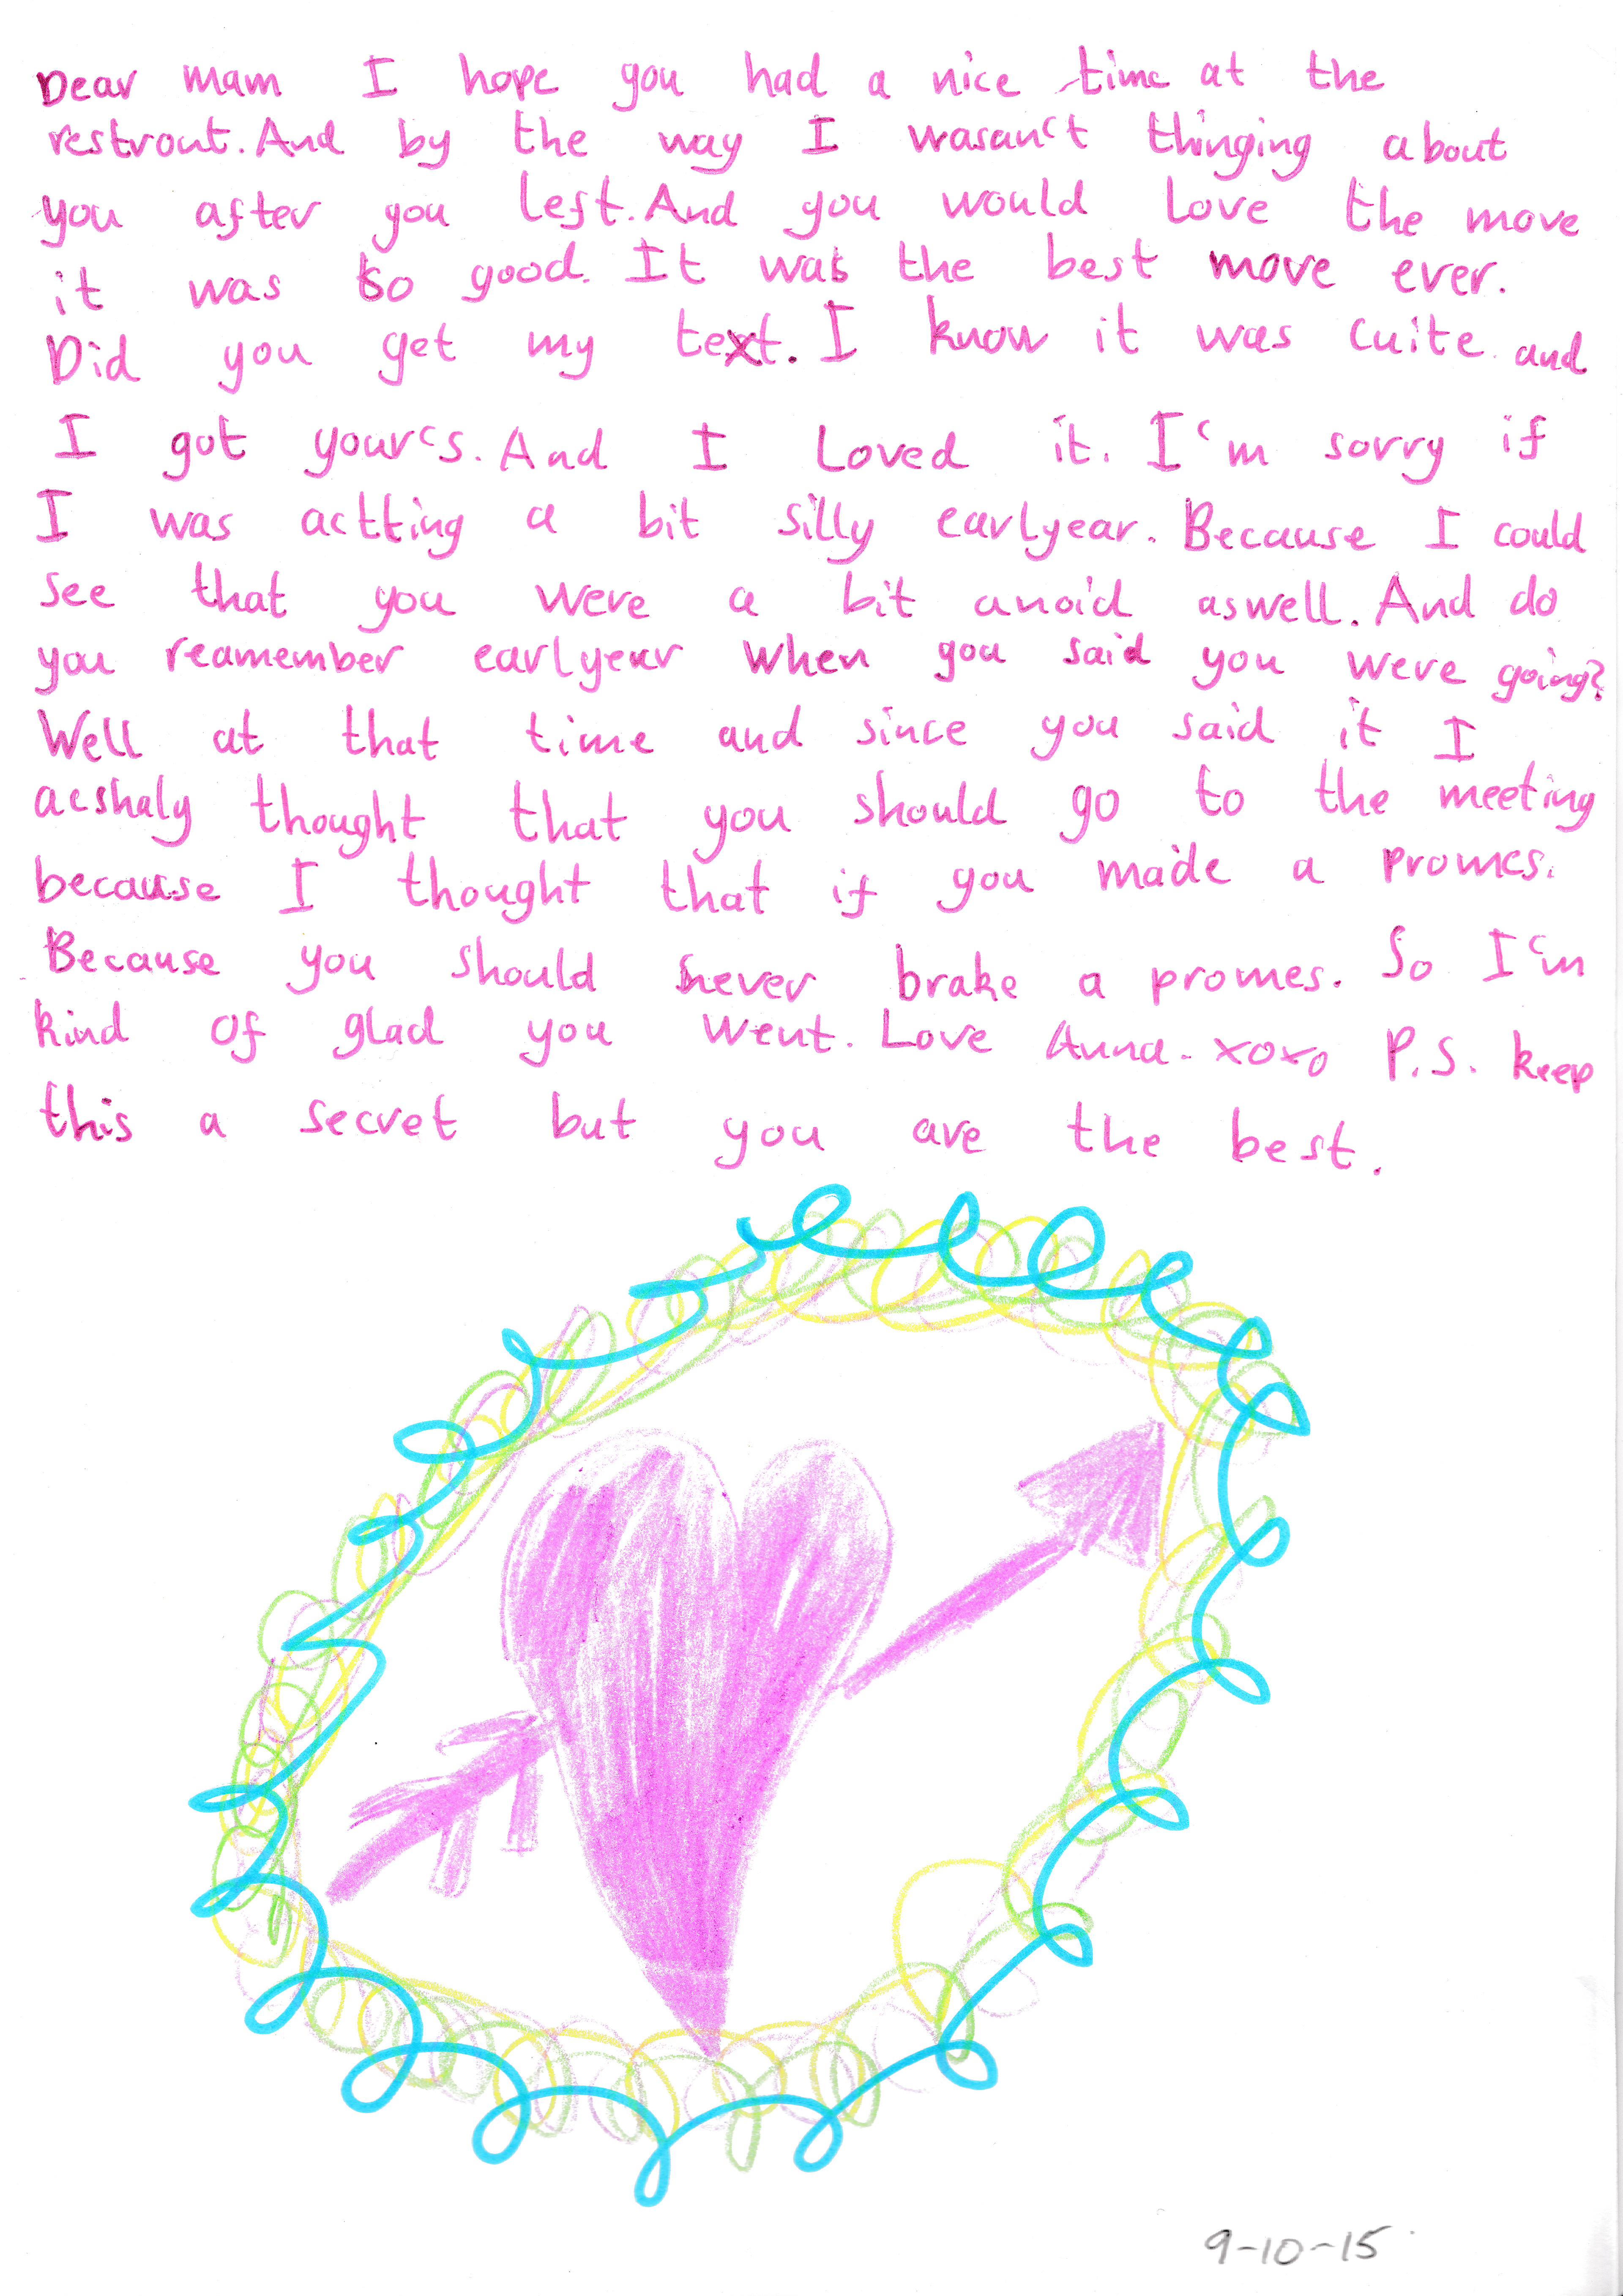 Dear mam I hope you had a nice time at the
restrout. And by the way I wasan't thinging about
you after you left. And you would love the move
it was so good. It was the best move ever.
Did you get my text. I know it was cuite and
I got your's. And I Loved it. I'm sorry if
I was actting a bit silly earlyear. Because I could
see that you were a bit anoid aswell. And do
you reamember earlyear when you said you were going?
Well at that time and since you said it I
acshaly thought that you should go to the meeting
because I thought that if you made a promes.
Because you should never brake a promes. So I'm
kind of glad you went. Love Anna. xoxo P.S. keep
this a secret but you are the best.
9-10-15